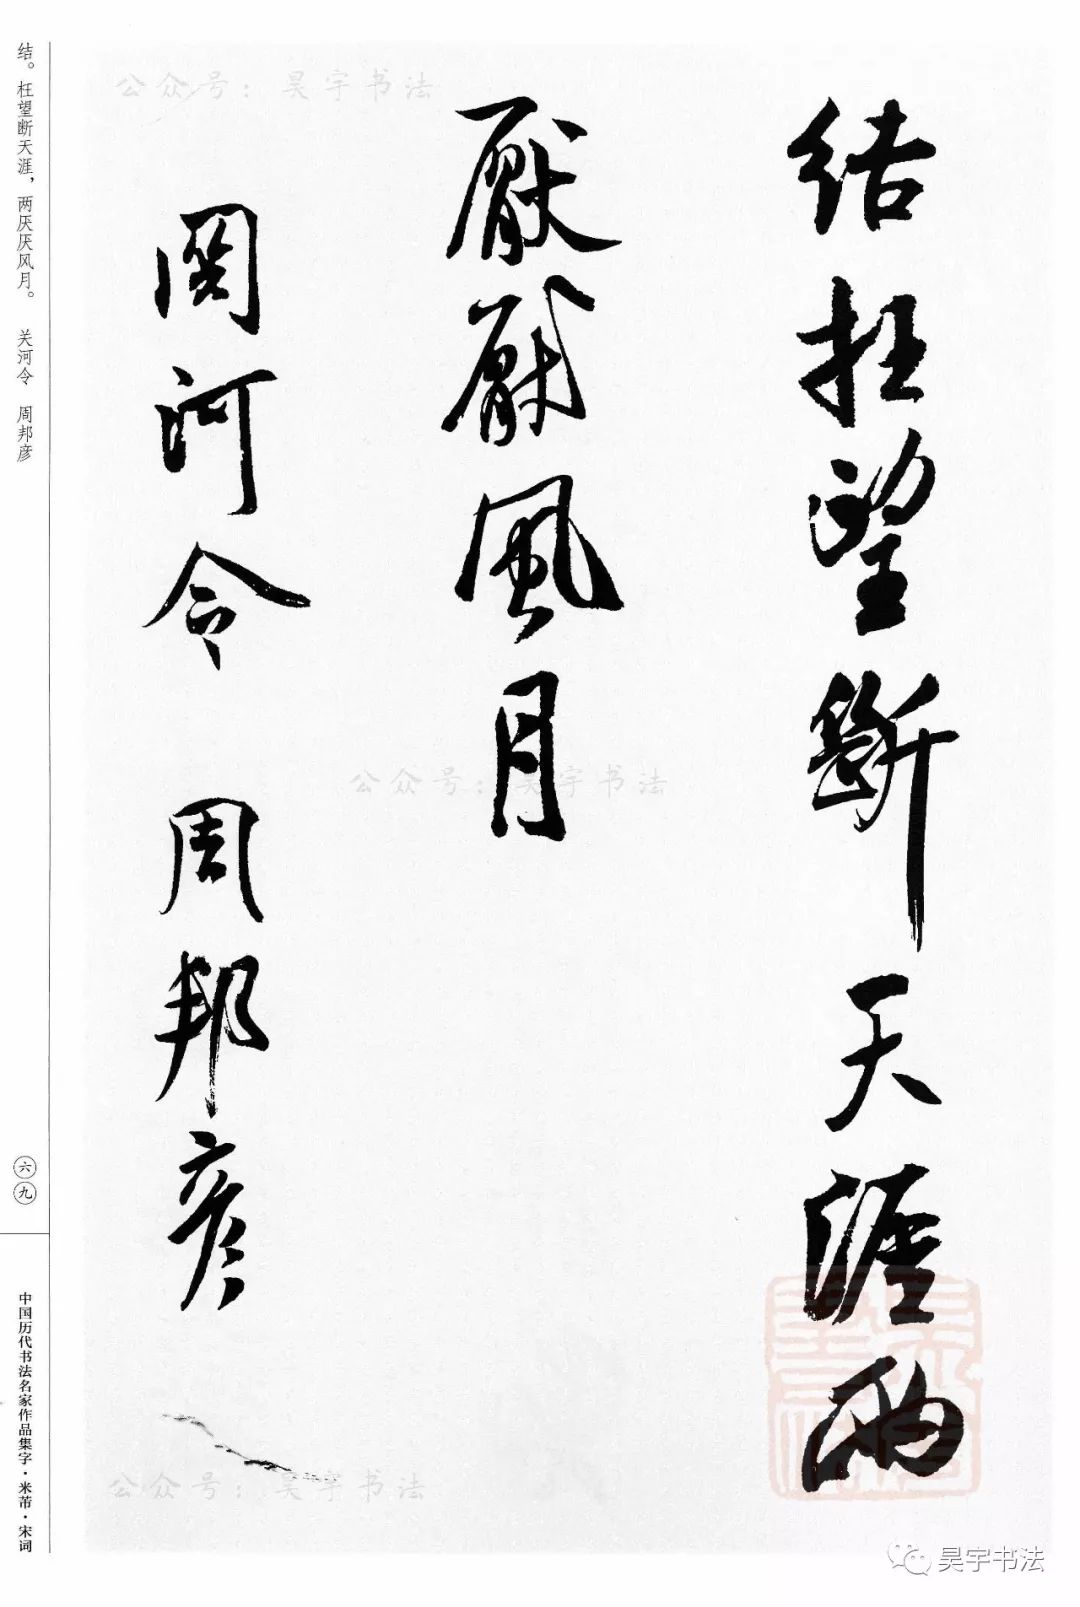 公众号：昊宇书法
结枉望断天涯两
厭厭風月
関河令 周邦彦
公众号：昊宇书法
公众号：昊宇书法
结。枉望断天涯，两厌厌风月。 关河令 周邦彦
六九
中国历代书法名家作品集字·米芾·宋词
昊宇书法